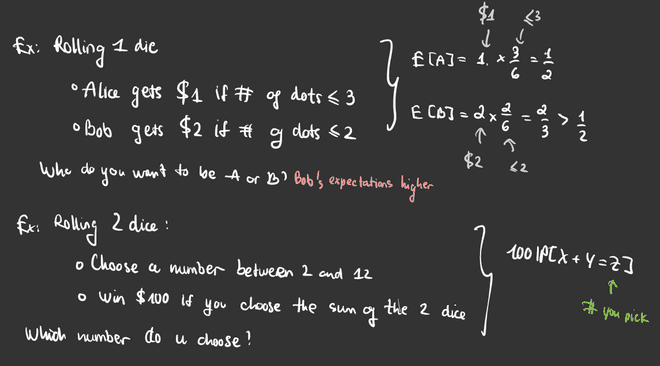 Ex: Rolling 1 die
• Alice gets $1 if # of dots ≤ 3
• Bob gets $2 if # of dots ≤ 2
Who do you want to be A or B? Bob's expectations higher
$1 ≤3
E[A] = 1 × 3/6 = 1/2
E[B] = 2 × 2/6 = 2/3 > 1/2
$2 ≤2
Ex: Rolling 2 dice:
• Choose a number between 2 and 12
• Win $100 if you choose the sum of the 2 dice
Which number do u choose?
100 IP[X + Y = Z]
# you pick